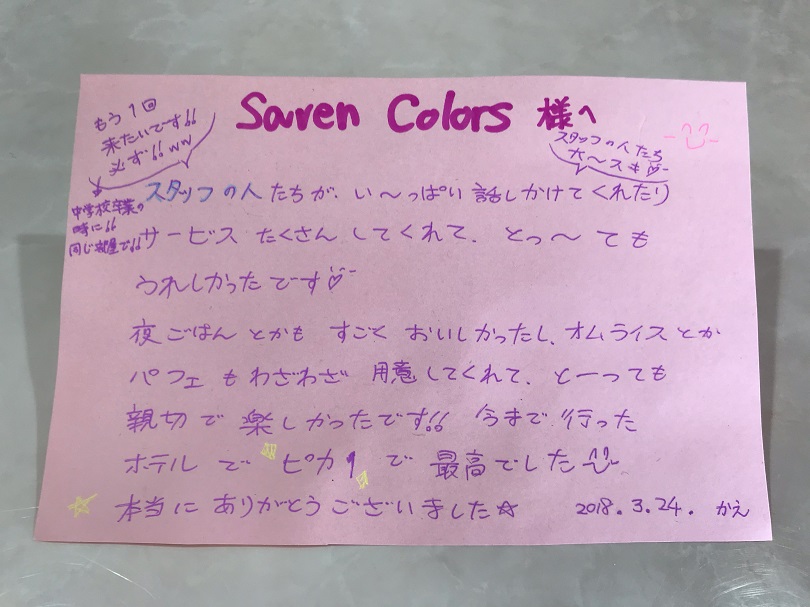 Saven Colors 様へ
もう1回
来たいです!!
必ず!! ww
スタッフの人たち
大〜スキ♡
中学校卒業の
時に!!
同じ部屋で!!
スタッフの人たちが、い〜っぱい話しかけてくれたり
サービスたくさんしてくれて、とっ〜ても
うれしかったです♡
夜ごはんとかもすごくおいしかったし、オムライスとか
パフェもわざわざ用意してくれて、とーっても
親切で楽しかったです!! 今まで行った
ホテルで"ピカ1"で最高でした
☆本当にありがとうございました☆ 2018.3.24. かえ